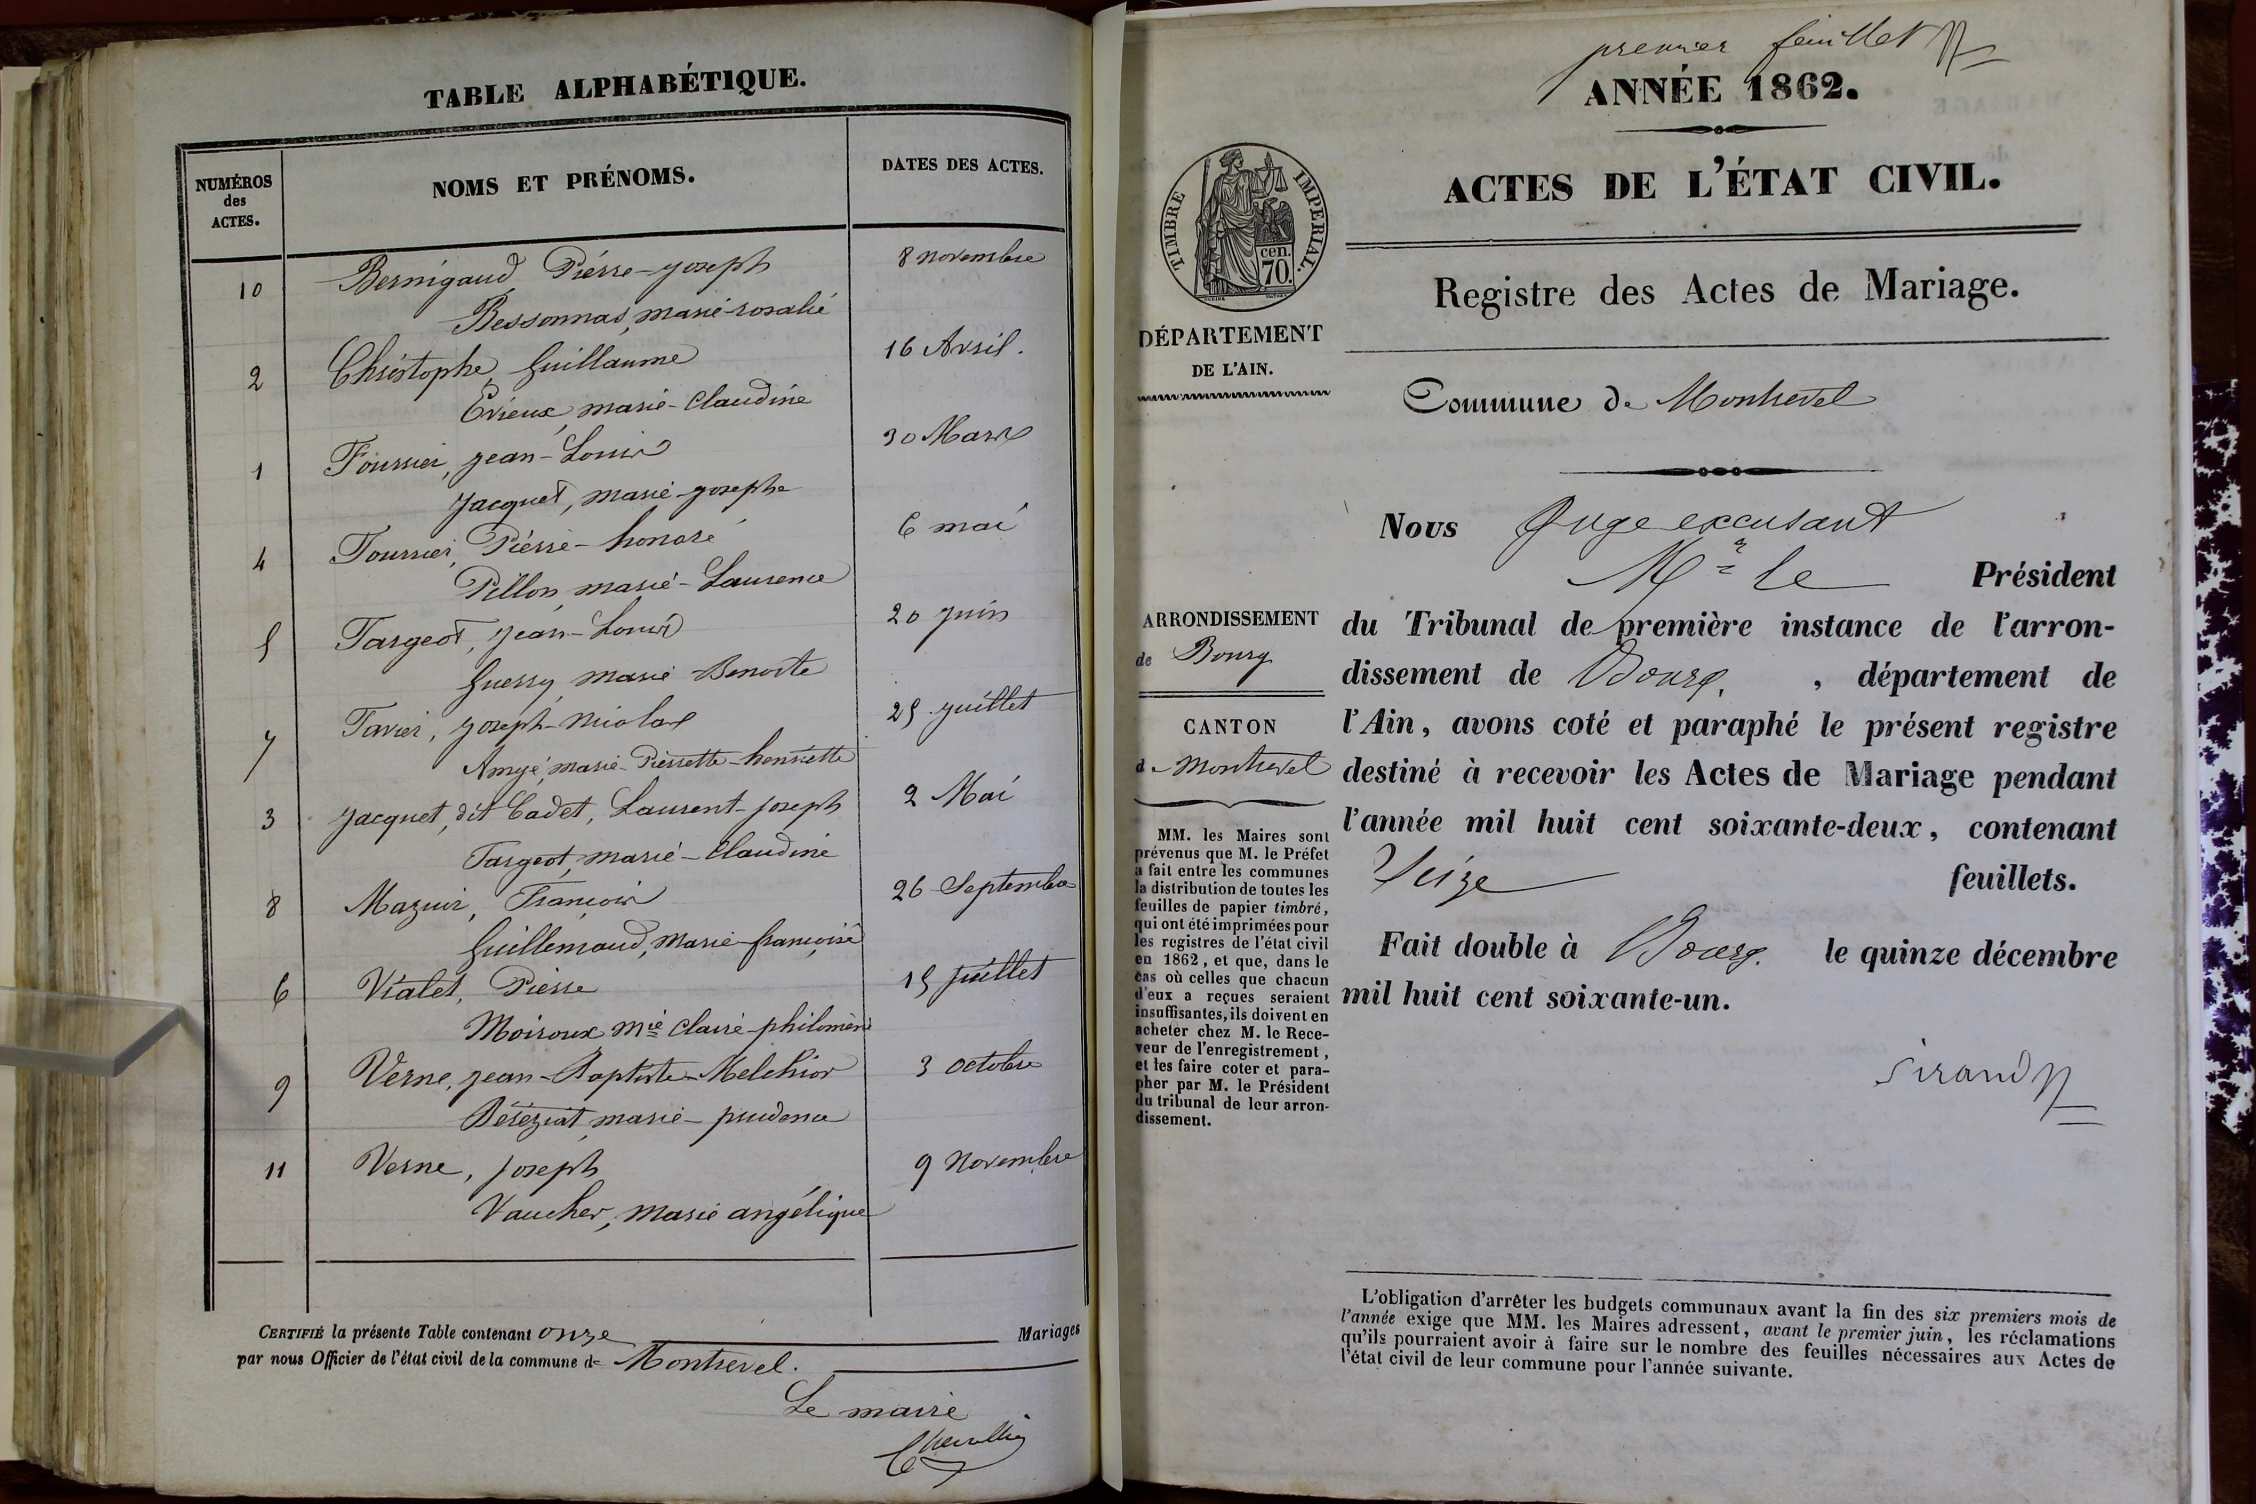 TABLE ALPHABÉTIQUE.
NUMÉROS
des
ACTES.
NOMS ET PRÉNOMS.
DATES DES ACTES.
10 Bernigaud, Pierre-joseph 8 novembre
Bessonnas, marie-rosalie
2 Christophe, Guillaume 16 Avril.
Evieux, marie-Claudine
1 Fournier, jean-Louis 30 Mars
Jacquet, marie-josephe
4 Fournier, Pierre-honoré 6 mai
Pillon, marie-Laurence
5 Fargeot, jean-Louis 20 juin
Guerry, marie Benoite
7 Favier, joseph-nicolas 25 juillet
marie-Pierrette-henriette
3 Jacquet, dit Cadet, Laurent-joseph 2 Mai
Fargeot, marie-Claudine
8 Mazuir, François 26 Septembre
Guillemaud, Marie-françoise
6 Vialet, Pierre 15 juillet
Moiroux Mie Claire-philomène
9 Verne, jean-Baptiste-Melchior 3 octobre
Béréziat, marie-prudence
11 Verne, joseph 9 novembre
Vaucher, marie angélique
CERTIFIÉ la présente Table contenant onze Mariages
par nous Officier de l'état civil de la commune de Montrevel.
Le maire
premier feuillet
ANNÉE 1862.
ACTES DE L'ÉTAT CIVIL.
TIMBRE IMPERIAL.
cen.
70.
Registre des Actes de Mariage.
DÉPARTEMENT
DE L'AIN.
Commune de Montrevel
Nous Juge excusant
Mr le Président
du Tribunal de première instance de l'arron-
dissement de Bourg, département de
l'Ain, avons coté et paraphé le présent registre
destiné à recevoir les Actes de Mariage pendant
l'année mil huit cent soixante-deux, contenant
Seize feuillets.
Fait double à Bourg. le quinze décembre
mil huit cent soixante-un.
Sirand
ARRONDISSEMENT
de Bourg
CANTON
d Montrevel
MM. les Maires sont
prévenus que M. le Préfet
a fait entre les communes
la distribution de toutes les
feuilles de papier timbré,
qui ont été imprimées pour
les registres de l'état civil
en 1862, et que, dans le
cas où celles que chacun
d'eux a reçues seraient
insuffisantes, ils doivent en
acheter chez M. le Rece-
veur de l'enregistrement,
et les faire coter et para-
pher par M. le Président
du tribunal de leur arron-
dissement.
L'obligation d'arrêter les budgets communaux avant la fin des six premiers mois de
l'année exige que MM. les Maires adressent, avant le premier juin, les réclamations
qu'ils pourraient avoir à faire sur le nombre des feuilles nécessaires aux Actes de
l'état civil de leur commune pour l'année suivante.